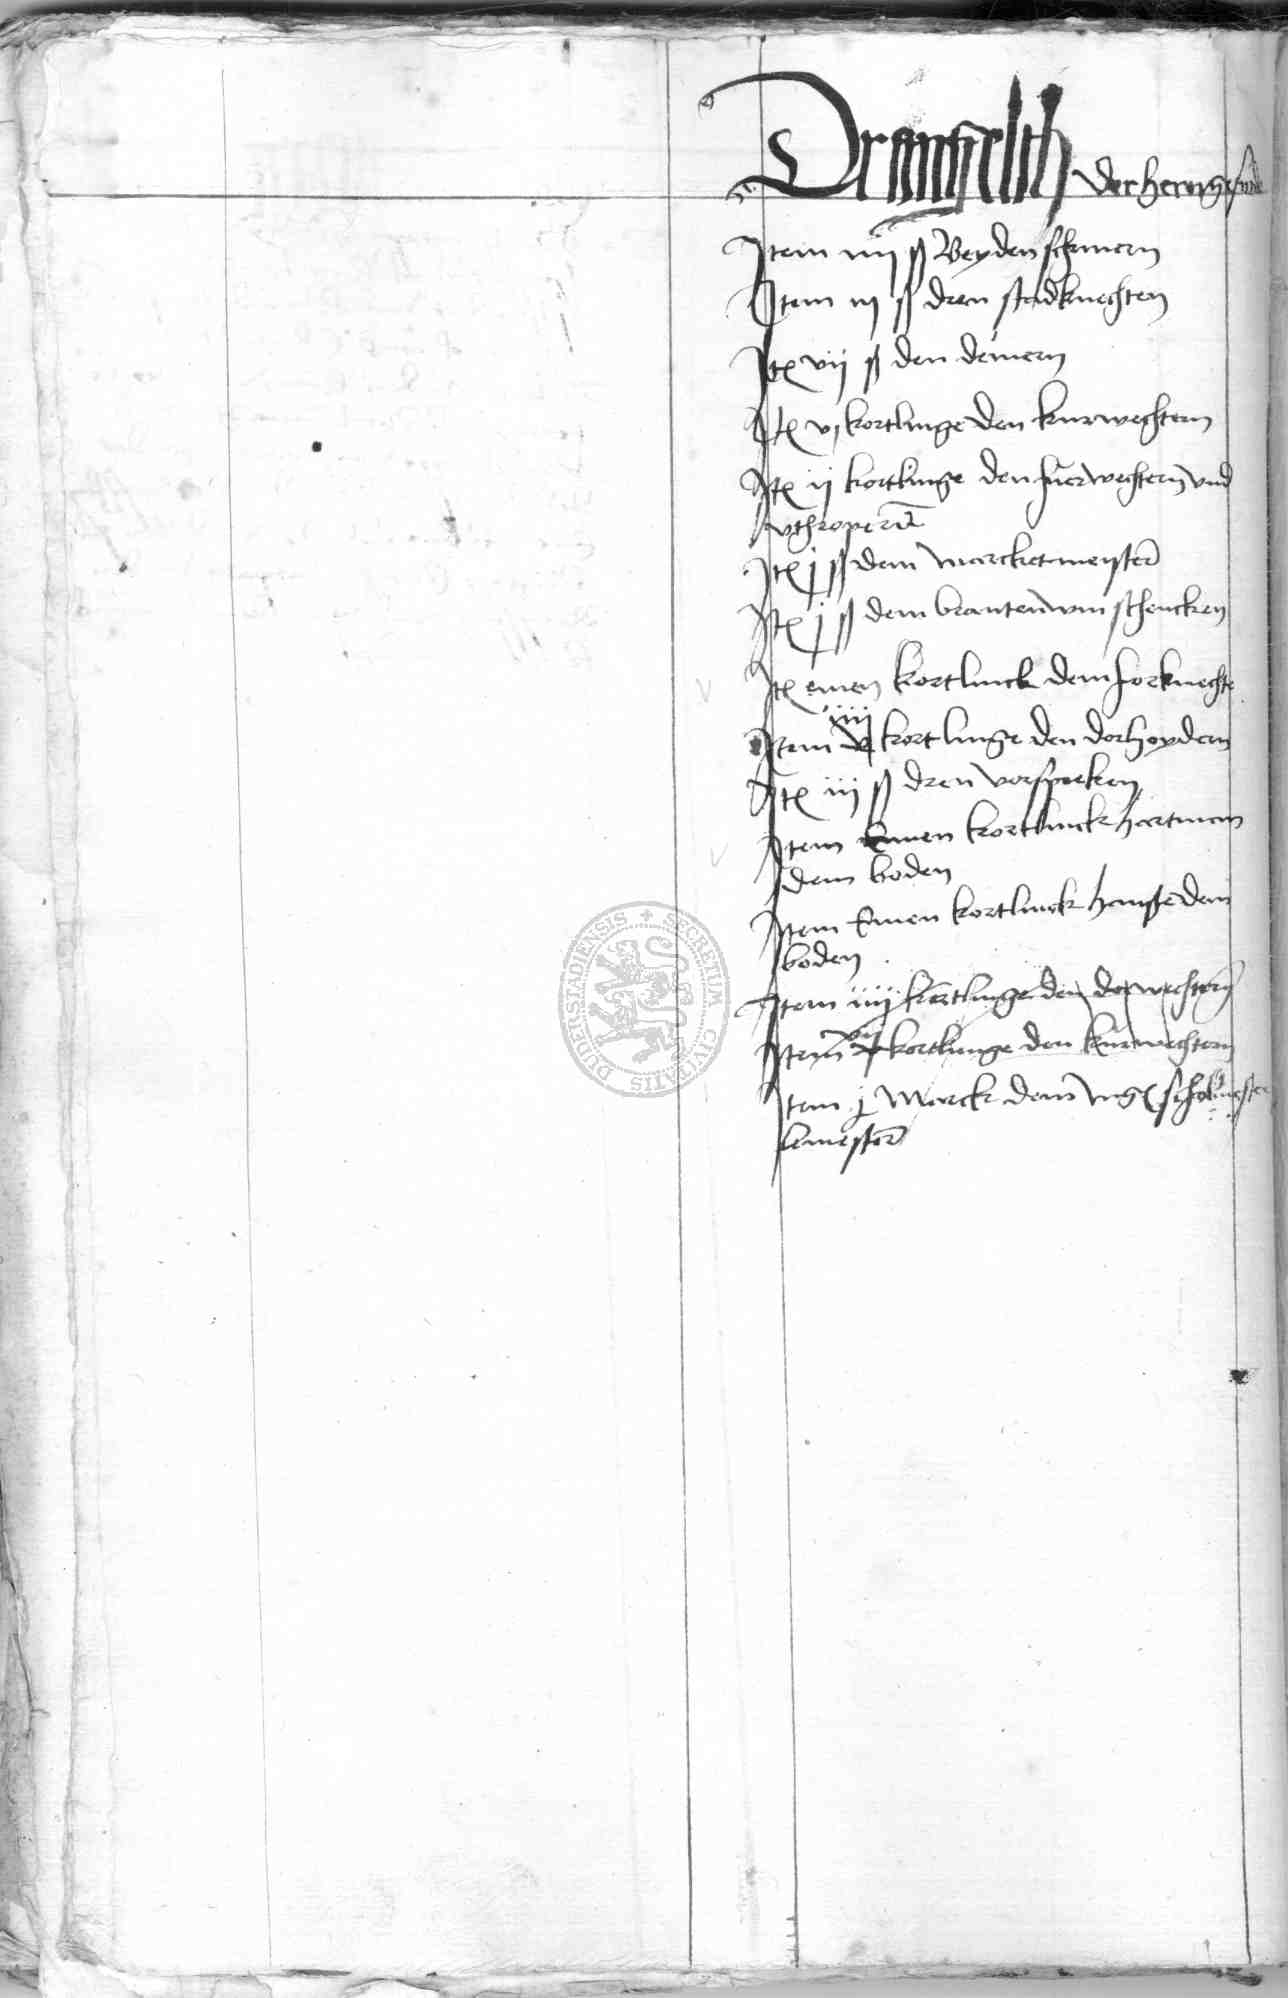 Dranckgelth der heren gesinde
Item iiij ß Beyden schrivern
Item iij ß dren stadknechten
Itē vij ß den denern
Itē vj kortlinge den kurwechtern
Itē ij kortlinge den furwechtern vnd
vthroperñ
Itē j ß dem marcketmeyster
Itē j ß dem brantenwin schencken
Itē einen kortlinck dem forknechte
Item iiij kortlinge den dorhoydern
Itē iij ß dren vorspreken
Item Einen kortlinck hartman
dem boden
Item Einen kortlinck hanße dem
boden
Item iiij kortlinge den dorwechtern
Item vij kortlinge den kurwechtern
Item j Marck dem schol
lemester
SECRETUM CIVITATIS DUDERSTADIENSIS